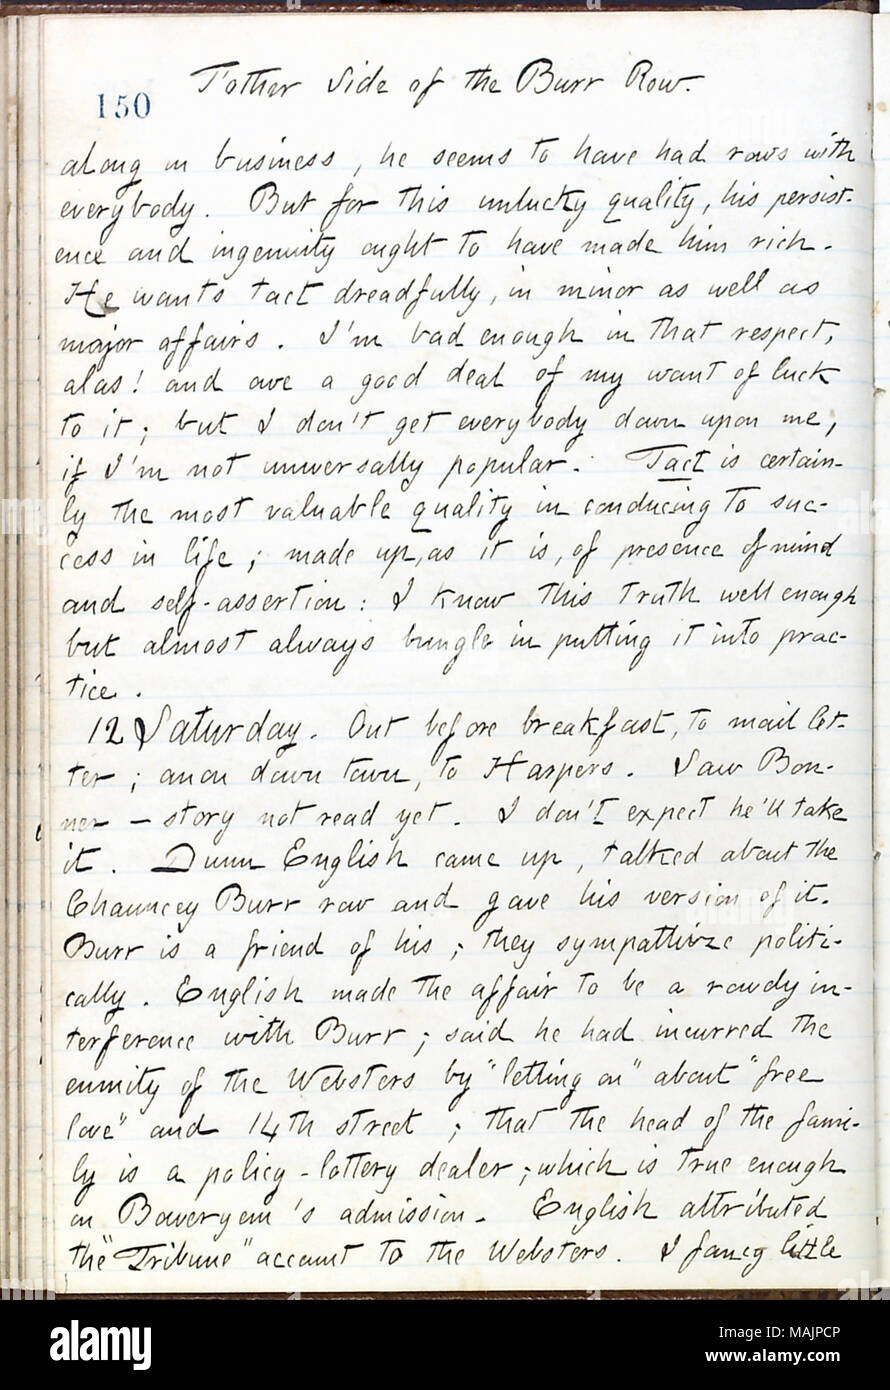 T'other Side of the Burr Row.
150
along in business, he seems to have had rows with
everybody. But for this unlucky quality, his persist-
ence and ingenuity ought to have made him rich.
He wants tact dreadfully, in minor as well as
major affairs. I'm bad enough in that respect,
alas! and owe a good deal of my want of luck
to it; but I don't get everybody down upon me,
if I'm not universally popular. Tact is certain-
ly the most valuable quality in conducing to suc-
cess in life; made up, as it is, of presence of mind
and self-assertion: I know this truth well enough
but almost always bungle in putting it into prac-
tice.
12 Saturday. Out before breakfast, to mail let-
ter; anon down town, to Harpers. Saw Bon-
ner — story not read yet. I don't expect he'll take
it. Dunn English came up, talked about the
Chauncey Burr row and gave his version of it.
Burr is a friend of his; they sympathize politi-
cally. English made the affair to be a rowdy in-
terference with Burr; said he had incurred the
enmity of the Websters by "letting on" about "free
love" and 14th street; that the head of the fami-
ly is a policy-lottery dealer; which is true enough
on Boweryem's admission. English attributed
the "Tribune" account to the Websters. I fancy little
alamy
Image ID: MAJPCP
www.alamy.com